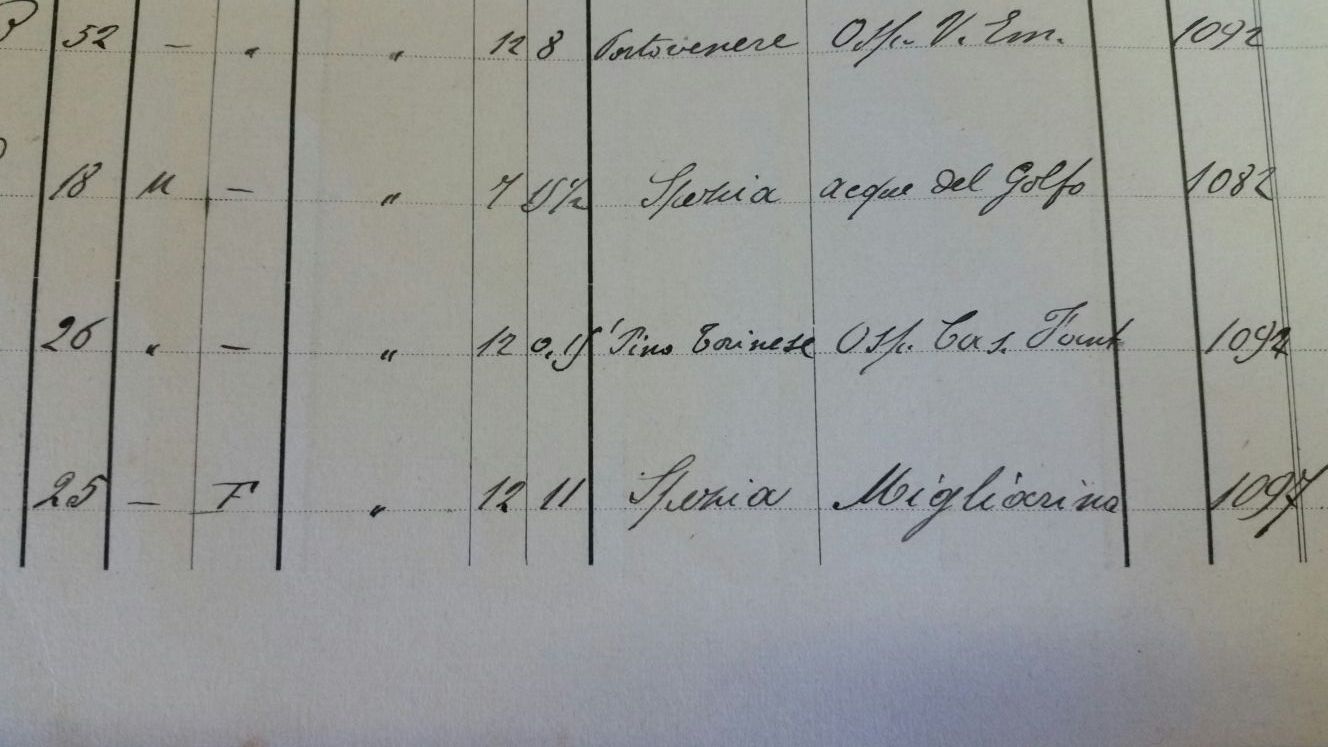 52 - " " 12 8 Portovenere Osp. V. Em. 1092
18 M - " 7 15½ Spezia acque del Golfo 1082
26 " - " 12 0,15 Pino Torinese Osp. Cas. 1092
25 - F " 12 11 Spezia Migliarina 1097